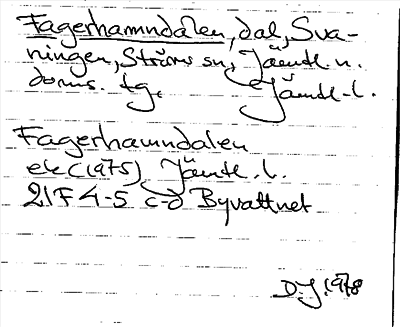 Fagerhamndalen, dal, Sva-
ningen, Ströms sn, Jämtl. n.
doms. tg. Jämtl. l.
Fagerhamndalen
ek (1975) Jämtl. l.
21F 4-5 c-d Byvattnet
DJ. 1978